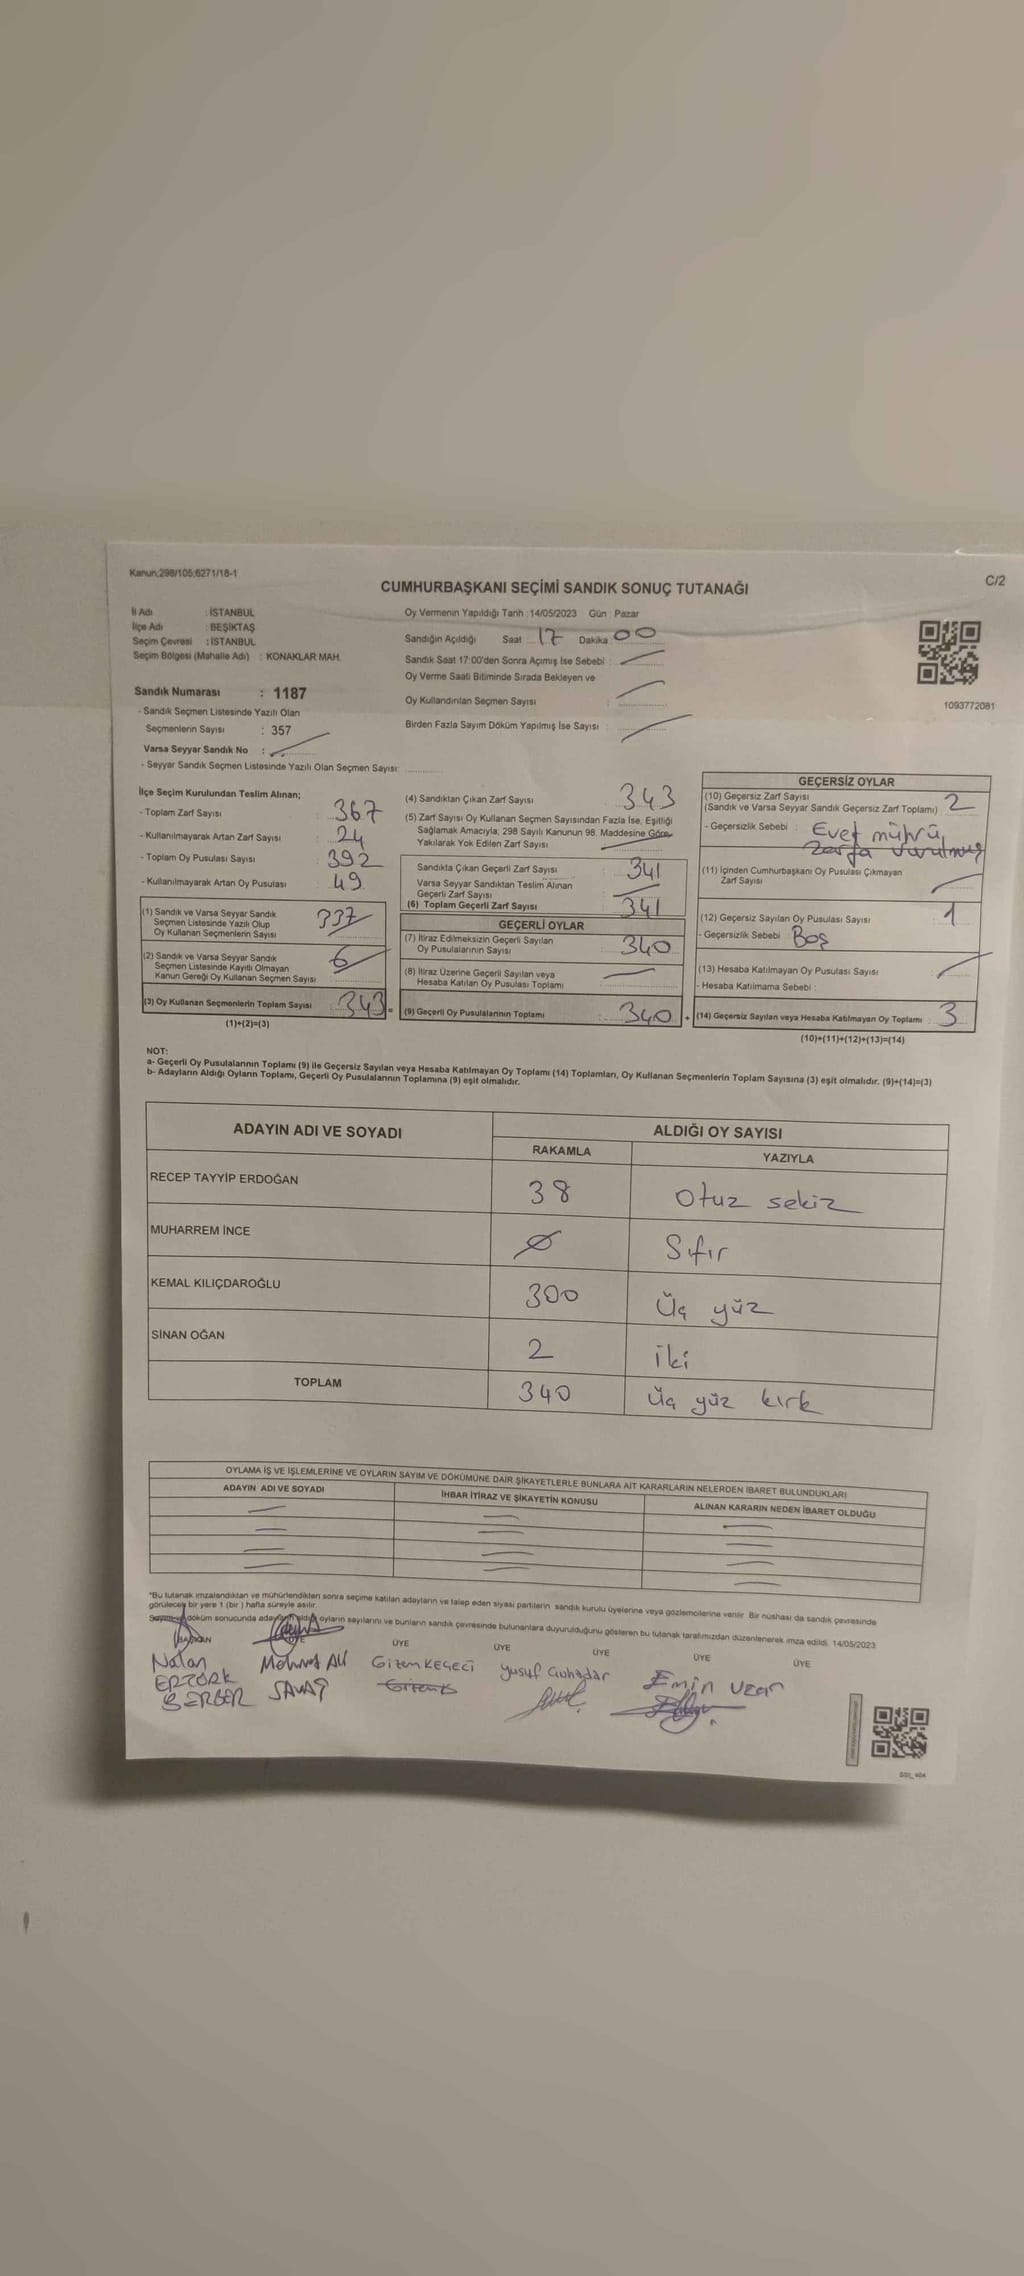 Kanun;298/105;6271/18-1
CUMHURBAŞKANI SEÇİMİ SANDIK SONUÇ TUTANAĞI
C/2
İl Adı : İSTANBUL
İlçe Adı : BEŞİKTAŞ
Seçim Çevresi : İSTANBUL
Seçim Bölgesi (Mahalle Adı) : KONAKLAR MAH.
Sandık Numarası : 1187
- Sandık Seçmen Listesinde Yazılı Olan
Seçmenlerin Sayısı : 357
Varsa Seyyar Sandık No :
- Seyyar Sandık Seçmen Listesinde Yazılı Olan Seçmen Sayısı:
Oy Vermenin Yapıldığı Tarih : 14/05/2023 Gün : Pazar
Sandığın Açıldığı Saat 17 Dakika 00
Sandık Saat 17:00'den Sonra Açımış İse Sebebi :
Oy Verme Saati Bitiminde Sırada Bekleyen ve
Oy Kullandırılan Seçmen Sayısı :
Birden Fazla Sayım Döküm Yapılmış İse Sayısı :
1093772081
İlçe Seçim Kurulundan Teslim Alınan;
- Toplam Zarf Sayısı : 367
- Kullanılmayarak Artan Zarf Sayısı : 24
- Toplam Oy Pusulası Sayısı : 392
- Kullanılmayarak Artan Oy Pusulası : 49
(1) Sandık ve Varsa Seyyar Sandık
Seçmen Listesinde Yazılı Olup
Oy Kullanan Seçmenlerin Sayısı 337
(2) Sandık ve Varsa Seyyar Sandık
Seçmen Listesinde Kayıtlı Olmayan
Kanun Gereği Oy Kullanan Seçmen Sayısı 6
(3) Oy Kullanan Seçmenlerin Toplam Sayısı 343 =
(1)+(2)=(3)
(4) Sandıktan Çıkan Zarf Sayısı : 343
(5) Zarf Sayısı Oy Kullanan Seçmen Sayısından Fazla İse, Eşitliği
Sağlamak Amacıyla; 298 Sayılı Kanunun 98. Maddesine Göre,
Yakılarak Yok Edilen Zarf Sayısı :
Sandıkta Çıkan Geçerli Zarf Sayısı : 341
Varsa Seyyar Sandıktan Teslim Alınan
Geçerli Zarf Sayısı :
(6) Toplam Geçerli Zarf Sayısı : 341
GEÇERLİ OYLAR
(7) İtiraz Edilmeksizin Geçerli Sayılan
Oy Pusulalarının Sayısı : 340
(8) İtiraz Üzerine Geçerli Sayılan veya
Hesaba Katılan Oy Pusulası Toplamı :
(9) Geçerli Oy Pusulalarının Toplamı : 340 +
GEÇERSİZ OYLAR
(10) Geçersiz Zarf Sayısı
(Sandık ve Varsa Seyyar Sandık Geçersiz Zarf Toplamı) : 2
- Geçersizlik Sebebi : Evet mührü
zarfa vurulmuş
(11) İçinden Cumhurbaşkanı Oy Pusulası Çıkmayan
Zarf Sayısı
(12) Geçersiz Sayılan Oy Pusulası Sayısı : 1
- Geçersizlik Sebebi : Boş
(13) Hesaba Katılmayan Oy Pusulası Sayısı :
- Hesaba Katılmama Sebebi :
(14) Geçersiz Sayılan veya Hesaba Katılmayan Oy Toplamı : 3
(10)+(11)+(12)+(13)=(14)
NOT:
a- Geçerli Oy Pusulalarının Toplamı (9) ile Geçersiz Sayılan veya Hesaba Katılmayan Oy Toplamı (14) Toplamları, Oy Kullanan Seçmenlerin Toplam Sayısına (3) eşit olmalıdır. (9)+(14)=(3)
b- Adayların Aldığı Oyların Toplamı, Geçerli Oy Pusulalarının Toplamına (9) eşit olmalıdır.
ADAYIN ADI VE SOYADI ALDIĞI OY SAYISI
RAKAMLA YAZIYLA
RECEP TAYYİP ERDOĞAN 38 Otuz sekiz
MUHARREM İNCE 0 Sıfır
KEMAL KILIÇDAROĞLU 300 Üç yüz
SİNAN OĞAN 2 iki
TOPLAM 340 Üç yüz kırk
OYLAMA İŞ VE İŞLEMLERİNE VE OYLARIN SAYIM VE DÖKÜMÜNE DAİR ŞİKAYETLERLE BUNLARA AİT KARARLARIN NELERDEN İBARET BULUNDUKLARI
ADAYIN ADI VE SOYADI İHBAR İTİRAZ VE ŞİKAYETİN KONUSU ALINAN KARARIN NEDEN İBARET OLDUĞU
*Bu tutanak imzalandıktan ve mühürlendikten sonra seçime katılan adayların ve talep eden siyasi partilerin sandık kurulu üyelerine veya gözlemcilerine verilir. Bir nüshası da sandık çevresinde
görülecek bir yere 1 (bir) hafta süreyle asılır.
Sayım ve döküm sonucunda adayların aldığı oyların sayılarını ve bunların sandık çevresinde bulunanlara duyurulduğunu gösteren bu tutanak tarafımızdan düzenlenerek imza edildi. 14/05/2023
BAŞKAN ÜYE ÜYE ÜYE ÜYE ÜYE ÜYE
Nalan Mehmet Ali Gizem KEÇECİ Yusuf Emin Uzan
ERTÜRK SAVAŞ Gizem
BERBER